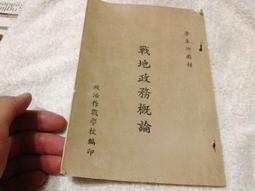 學生班教材
戰地政務概論
政治作戰學校編印